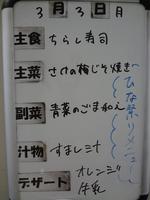 3月3日月
主食 ちらし寿司
主菜 さけの梅じそ焼き
副菜 青菜のごま和え
汁物 すまし汁
デザート オレンジ
牛乳
ひな祭りメニュー